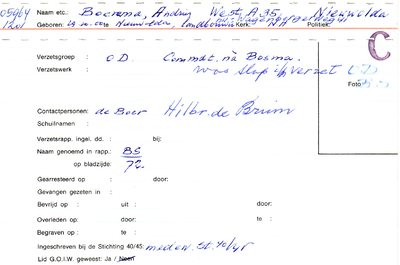 05964 Naam etc.: Boersma, Andries West A 35, Nieuwolda
Geboren: te Nieuwolda, landbouwer Kerk: NH Politiek:
C
Verzetsgroep : O.D. Commdt. na Bosma.
Verzetswerk : was slap in verzet
Foto:
Contactpersonen: de Boer Hilbr. de Bruim
Schuilnaam :
Verzetsrapp. ingel. dd. : bij:
Naam genoemd in rapp.: BS
op bladzijde: 72.
Gearresteerd op : door:
Gevangen gezeten in :
Bevrijd op : uit: door:
Overleden op : door: te :
Begraven op : te :
Ingeschreven bij de Stichting 40/45: medew. St. 40/45
Lid G.O.I.W. geweest: Ja / Neen